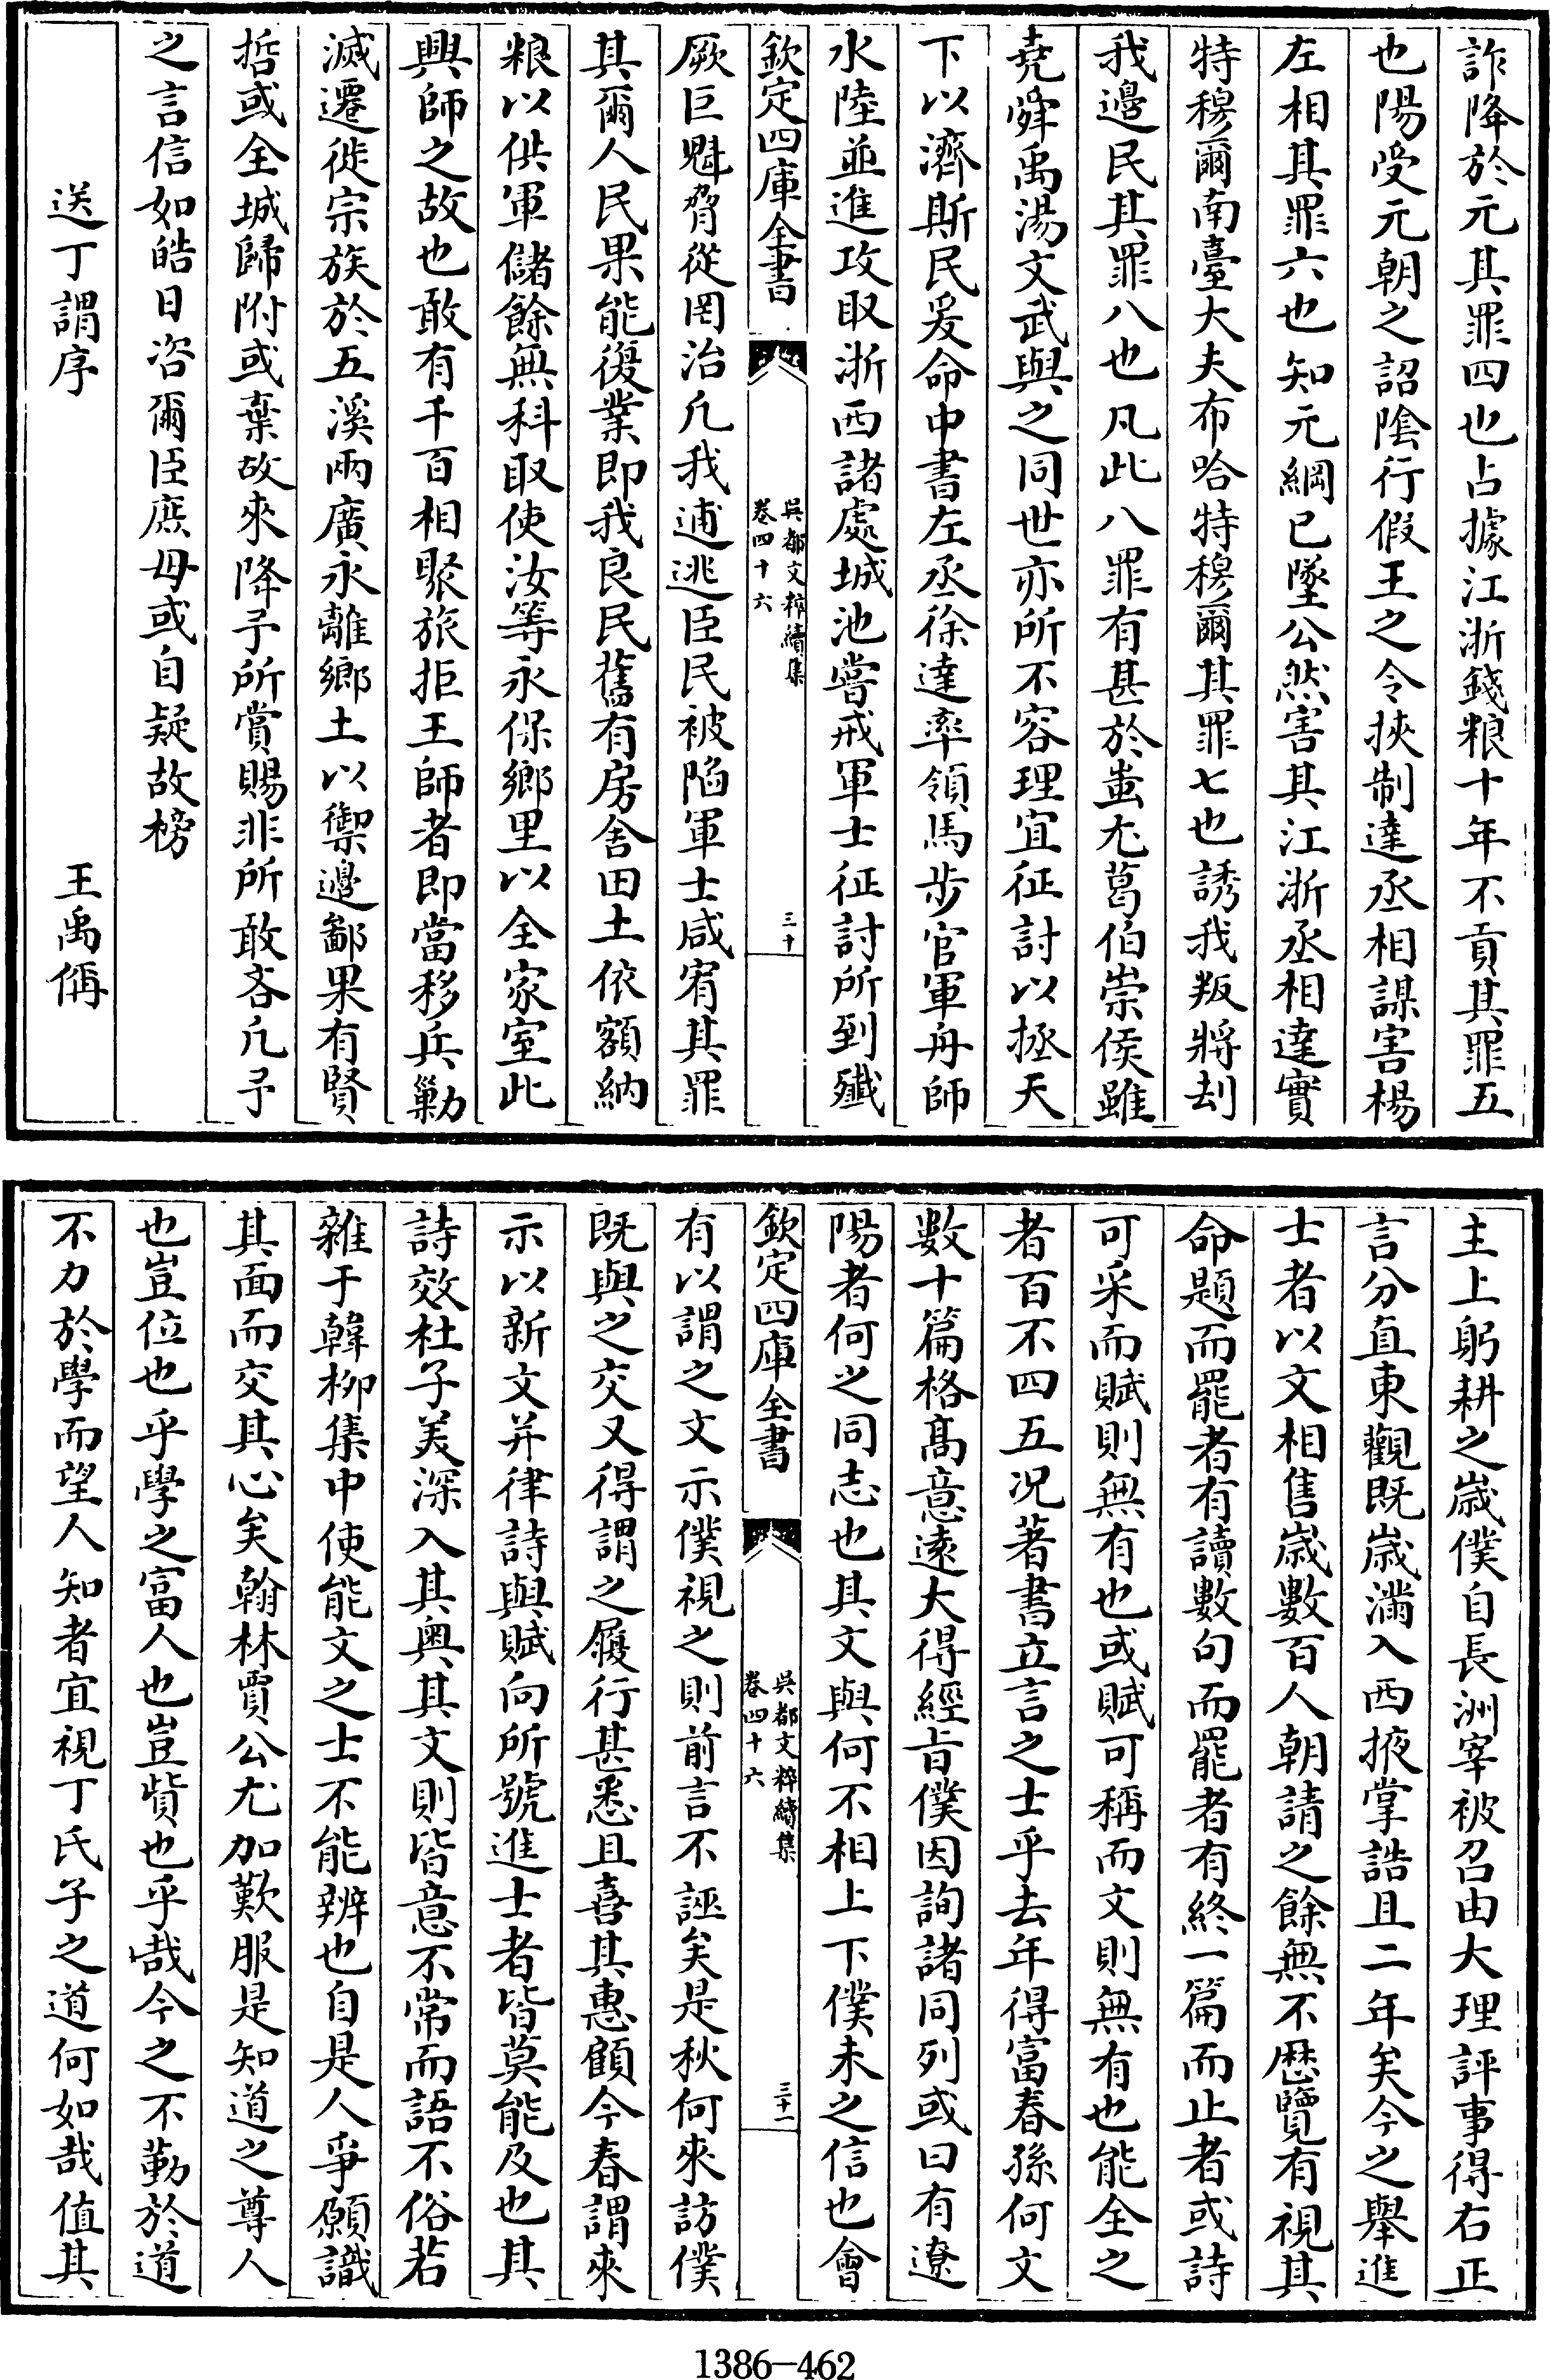 詐降於元其罪四也占據江浙錢粮十年不貢其罪五
也陽受元朝之詔陰行假王之令挾制達丞相謀害楊
左相其罪六也知元綱已墜公然害其江浙丞相達實
特穆爾南臺大夫布哈特穆爾其罪七也誘我叛將刦
我邊民其罪八也凡此八罪有甚於蚩尤葛伯崇侯雖
堯舜禹湯文武與之同世亦所不容理宜征討以拯天
下以濟斯民爰命中書左丞徐達率領馬步官軍舟師
水陸並進攻取浙西諸處城池嘗戒軍士征討所到殲
欽定四庫全書
吳都文粹續集
卷四十六
三十
厥巨魁脅從罔治凢我逋逃臣民被陷軍士咸宥其罪
其爾人民果能復業即我良民舊有房舍田土依額納
粮以供軍儲餘無科取使汝等永保鄉里以全家室此
興師之故也敢有千百相聚旅拒王師者即當移兵勦
滅遷徙宗族於五溪兩廣永離鄉土以禦邊鄙果有賢
哲或全城歸附或棄故來降予所賞賜非所敢吝凢予
之言信如皓日咨爾臣庶毋或自疑故榜
送丁謂序
王禹偁
主上躬耕之歲僕自長洲宰被召由大理評事得右正
言分直東觀既歲滿入西掖掌誥且二年矣今之舉進
士者以文相售歲數百人朝請之餘無不歷覽有視其
命題而罷者有讀數句而罷者有終一篇而止者或詩
可采而賦則無有也或賦可稱而文則無有也能全之
者百不四五况著書立言之士乎去年得富春孫何文
數十篇格高意遠大得經旨僕因詢諸同列或曰有遼
陽者何之同志也其文與何不相上下僕未之信也會
欽定四庫全書
吳都文粹續集
卷四十六
三十一
有以謂之文示僕視之則前言不誣矣是秋何來訪僕
既與之交又得謂之履行甚悉且喜其惠顧今春謂來
示以新文并律詩與賦向所號進士者皆莫能及也其
詩效杜子美深入其奥其文則皆意不常而語不俗若
雜于韓柳集中使能文之士不能辨也自是人爭願識
其面而交其心矣翰林賈公尤加歎服是知道之尊人
也豈位也乎學之富人也豈貲也乎哉今之不勤於道
不力於學而望人知者宜視丁氏子之道何如哉值其
1386—462